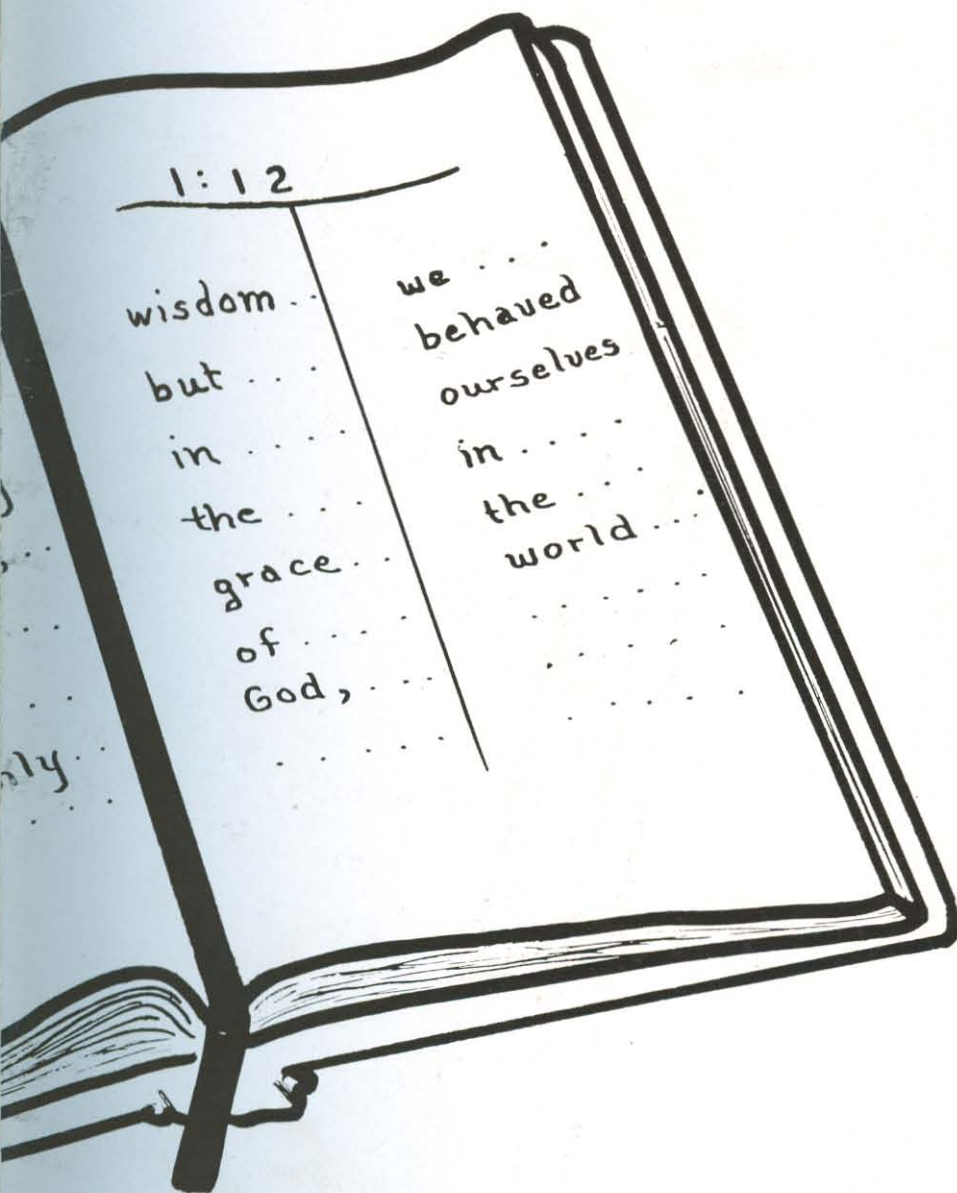 1:12
wisdom ..
but ....
in ....
the ....
grace ..
of ....
God, ....
we ...
behaved
ourselves
in ....
the ...
world ...